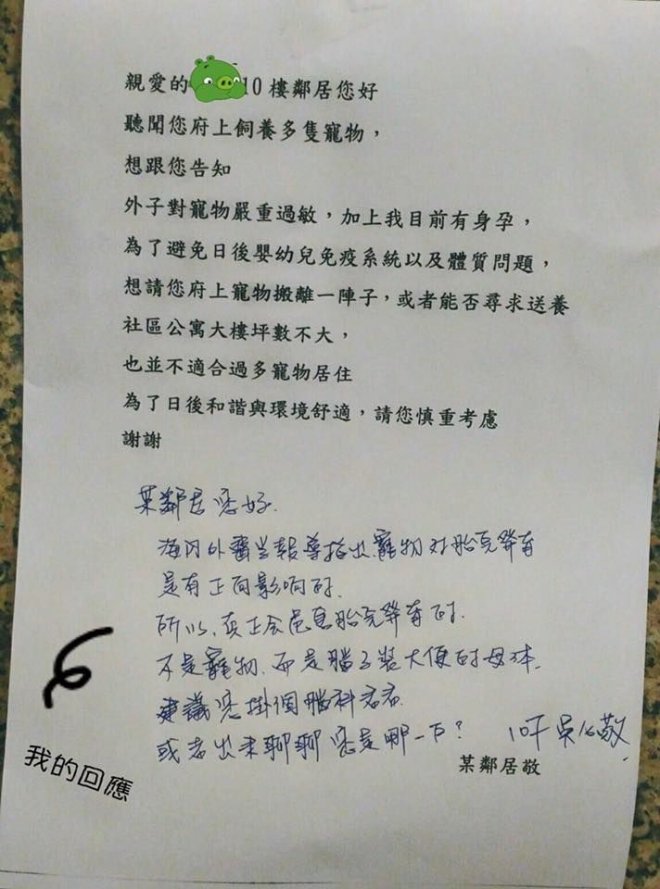 親愛的 10樓鄰居您好
聽聞您府上飼養多隻寵物，
想跟您告知
外子對寵物嚴重過敏，加上我目前有身孕，
為了避免日後嬰幼兒免疫系統以及體質問題，
想請您府上寵物搬離一陣子，或者能否尋求送養
社區公寓大樓坪數不大，
也並不適合過多寵物居住
為了日後和諧與環境舒適，請您慎重考慮
謝謝
某鄰居您好.
海內外醫學報導指出寵物对胎兒發育
是有正向影响的.
所以,真正会危害胎兒發育的.
不是寵物.而是腦子裝大便的母体.
建議您掛個腦科看看
或者出來聊聊您是哪一户? 10F 吳 敬
某鄰居敬
我的回應